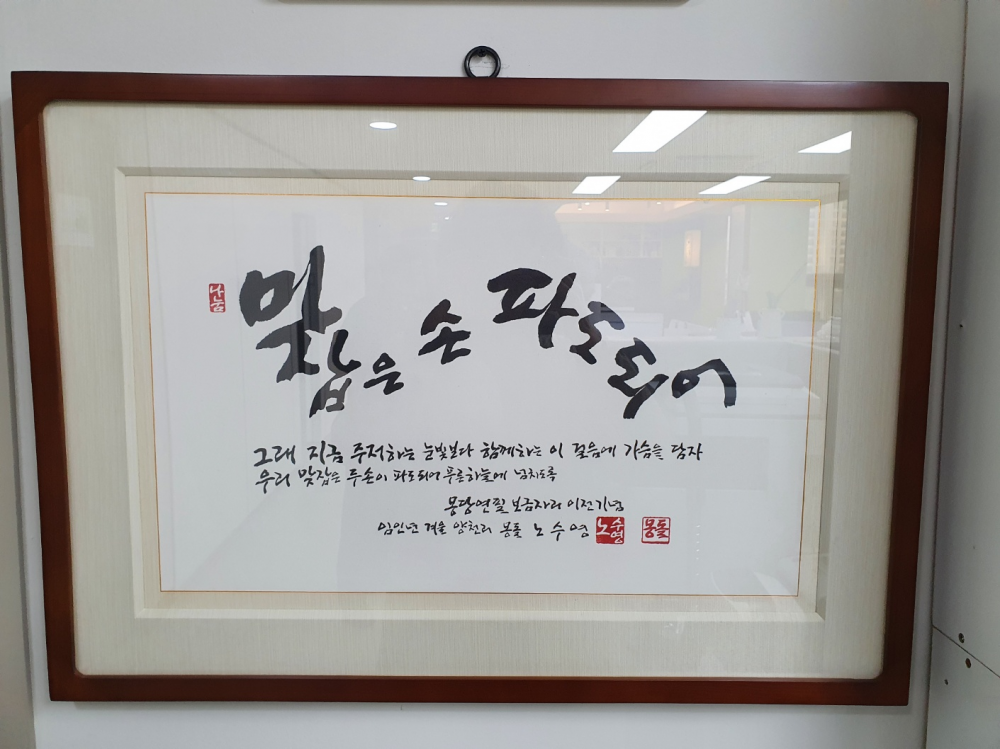 나눔
맞잡은 손 파도되어
그래 지금 주저하는 눈빛보다 함께하는 이 걸음에 가슴을 담자
우리 맞잡은 두손이 파도되어 푸른하늘에 넘치도록
몽당연필 보금자리 이전기념
임인년 겨울 양천리 몽돌 노수영 노수영 몽돌